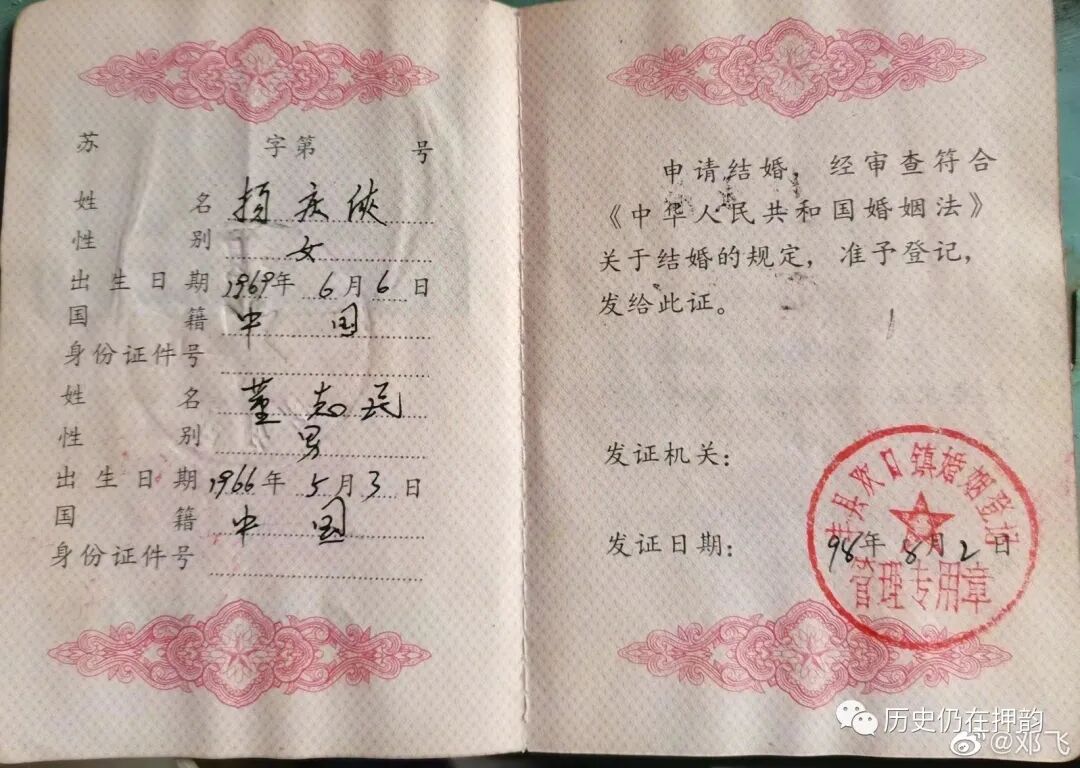 苏 字第 号
姓 名 杨庆侠
性 别 女
出生日期 1969年 6月 6日
国 籍 中国
身份证件号
姓 名 董志民
性 别 男
出生日期 1966年 5月 3日
国 籍 中国
身份证件号
申请结婚,经审查符合
《中华人民共和国婚姻法》
关于结婚的规定,准予登记,
发给此证。
发证机关:
丰县欢口镇婚姻登记
管理专用章
发证日期: 98年 8月 2日
历史仍在押韵
@邓飞